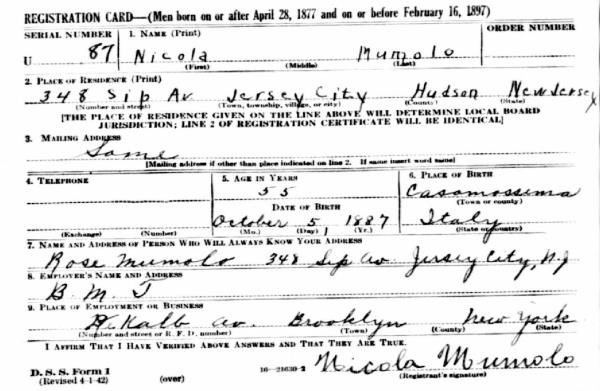 REGISTRATION CARD—(Men born on or after April 28, 1877 and on or before February 16, 1897)
SERIAL NUMBER 1. NAME (Print) ORDER NUMBER
U 87 Nicola Mumolo
(First) (Middle) (Last)
2. PLACE OF RESIDENCE (Print)
348 Sip Av Jersey City Hudson New Jersey
(Number and street) (Town, township, village, or city) (County) (State)
[THE PLACE OF RESIDENCE GIVEN ON THE LINE ABOVE WILL DETERMINE LOCAL BOARD
JURISDICTION; LINE 2 OF REGISTRATION CERTIFICATE WILL BE IDENTICAL]
3. MAILING ADDRESS
Same
[Mailing address if other than place indicated on line 2. If same insert word same]
4. TELEPHONE 5. AGE IN YEARS 6. PLACE OF BIRTH
55 Casamossima
DATE OF BIRTH (Town or county)
October 5 1887 Italy
(Exchange) (Number) (Mo.) (Day) (Yr.) (State or country)
7. NAME AND ADDRESS OF PERSON WHO WILL ALWAYS KNOW YOUR ADDRESS
Rose Mumolo 348 Sip av Jersey City, N.J
8. EMPLOYER'S NAME AND ADDRESS
B. M. T
9. PLACE OF EMPLOYMENT OR BUSINESS
DeKalb av. Brooklyn New York
(Number and street or R. F. D. number) (Town) (County) (State)
I AFFIRM THAT I HAVE VERIFIED ABOVE ANSWERS AND THAT THEY ARE TRUE.
D. S. S. Form 1
(Revised 4-1-42) (over) 16—21630-2 Nicola Mumolo
(Registrant's signature)